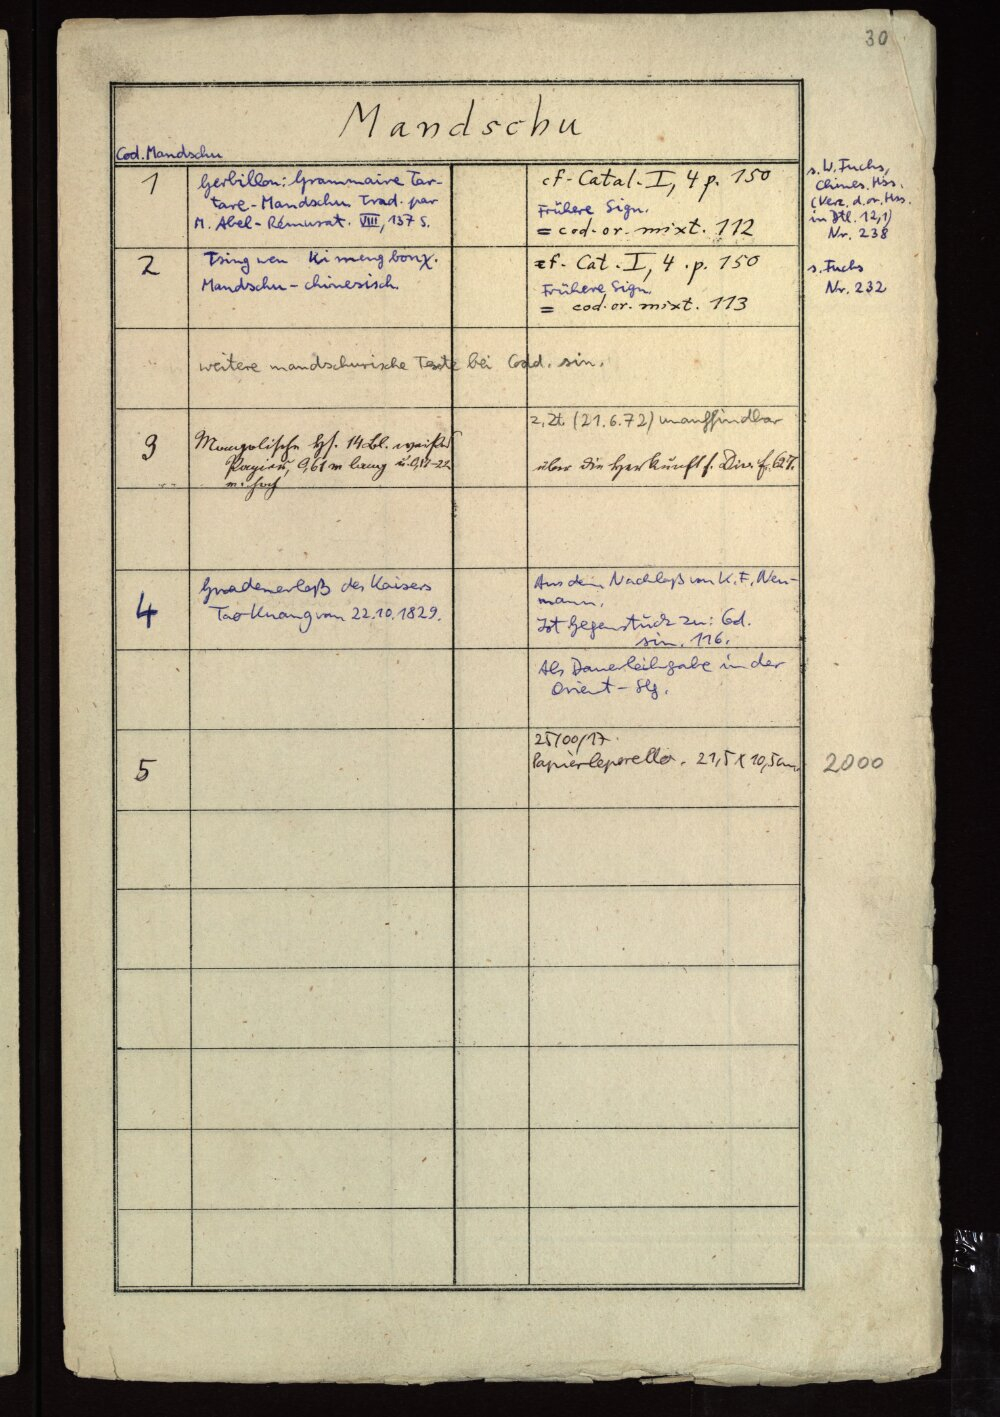 30
Mandschu
Cod. Mandschu
1
Gerbillon: Grammaire Tar-
tare-Mandschu Trad. par
M. Abel-Rémusat. VIII, 137 S.
cf. Catal. I, 4 p. 150
Frühere Sign.
= cod. or. mixt. 112
s. W. Fuchs,
Chines. Hss.
(Verz. d. or. Hss.
in Dtl. 12,1)
Nr. 238
2
Tsing wen Ki meng
Mandschu-chinesisch
cf. Cat. I, 4. p. 150
Frühere Sign.
= cod. or. mixt. 113
s. Fuchs
Nr. 232
weitere mandschurische Texte bei Codd. sin.
3
Mongolische Hs. 14 Bl. weißes
Papier, 0,61 m lang u. 0,17-22
m. hoch
z. Zt. (21.6.72) unauffindbar
über die Herkunft s.
4
Gnadenerlaß des Kaisers
Tao Kuang vom 22.10.1829.
Aus dem Nachlaß von K. F. Neu-
mann.
Ist Gegenstück zu: Cod.
sin. 116.
Als Dauerleihgabe in der
Orient-Slg.
5
25/00/17
Papierleporello. 21,5 x 10,5 cm.
2000